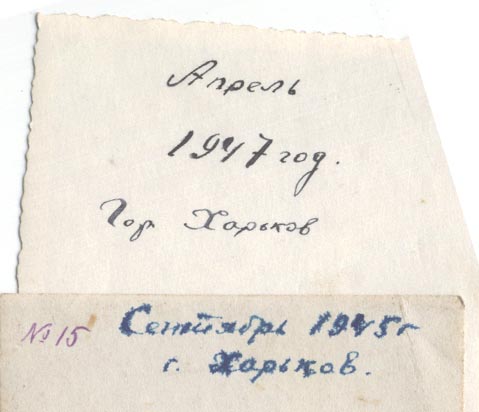 Апрель
1947 год.
Гор. Харьков
№ 15 Сентябрь 1945 г
г. Харьков.